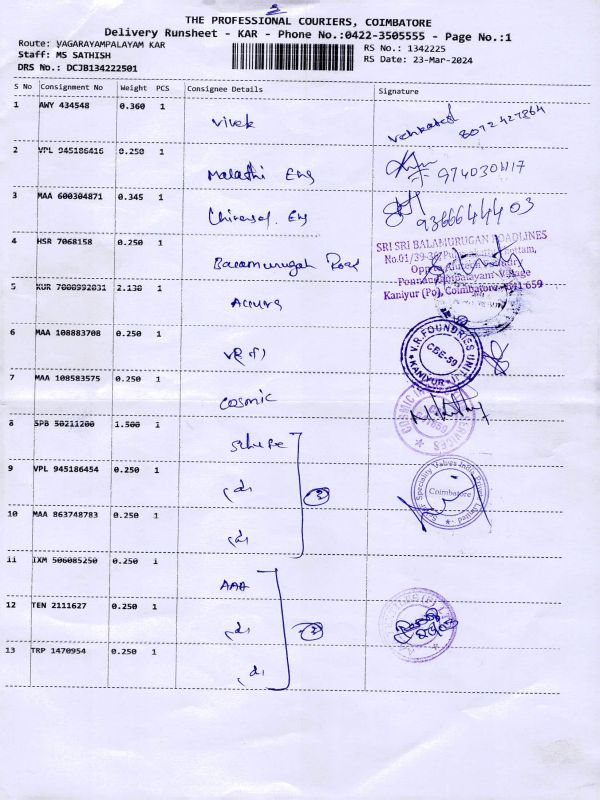 THE PROFESSIONAL COURIERS, COIMBATORE
Delivery Runsheet - KAR - Phone No.:0422-3505555 - Page No.:1
Route: VAGARAYAMPALAYAM KAR
Staff: MS SATHISH
DRS No.: DCJB134222501
RS No.: 1342225
RS Date: 23-Mar-2024
S No Consignment No Weight PCS Consignee Details Signature
1 AWY 434548 0.360 1 Vivek Venkatesh
2 VPL 945186416 0.250 1 Malathi Eng
3 MAA 600304871 0.345 1 Universal Eng 9366644403
4 HSR 7068158 0.250 1 Balamurugan Road
SRI SRI BALAMURUGAN ROADLINES
Kaniyur (Po), Coimbatore - 641 659
5 KUR 7000992031 2.130 1 Accura
6 MAA 108883708 0.250 1
V.R. FOUNDRIES UNIT-II
CBE-59
KANIYUR
7 MAA 108583575 0.250 1 Cosmic
COSMIC
SERVICES
8 SPB 50211200 1.500 1
9 VPL 945186454 0.250 1
Speciality Valves India Private Limited
Coimbatore
10 MAA 863748783 0.250 1
11 IXM 506085250 0.250 1 AAA
12 TEN 2111627 0.250 1
13 TRP 1470954 0.250 1